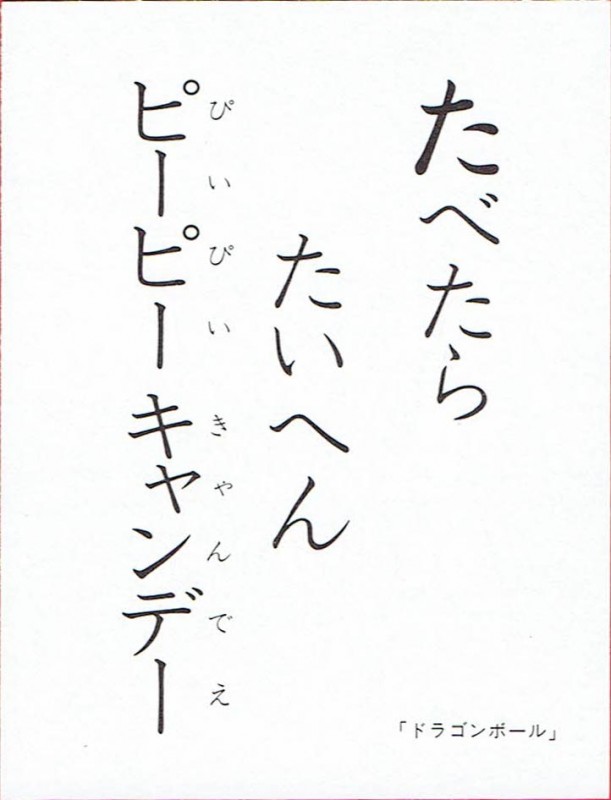 たべたら
たいへん
ピーピーキャンデー
ぴいぴいきゃんでえ
「ドラゴンボール」